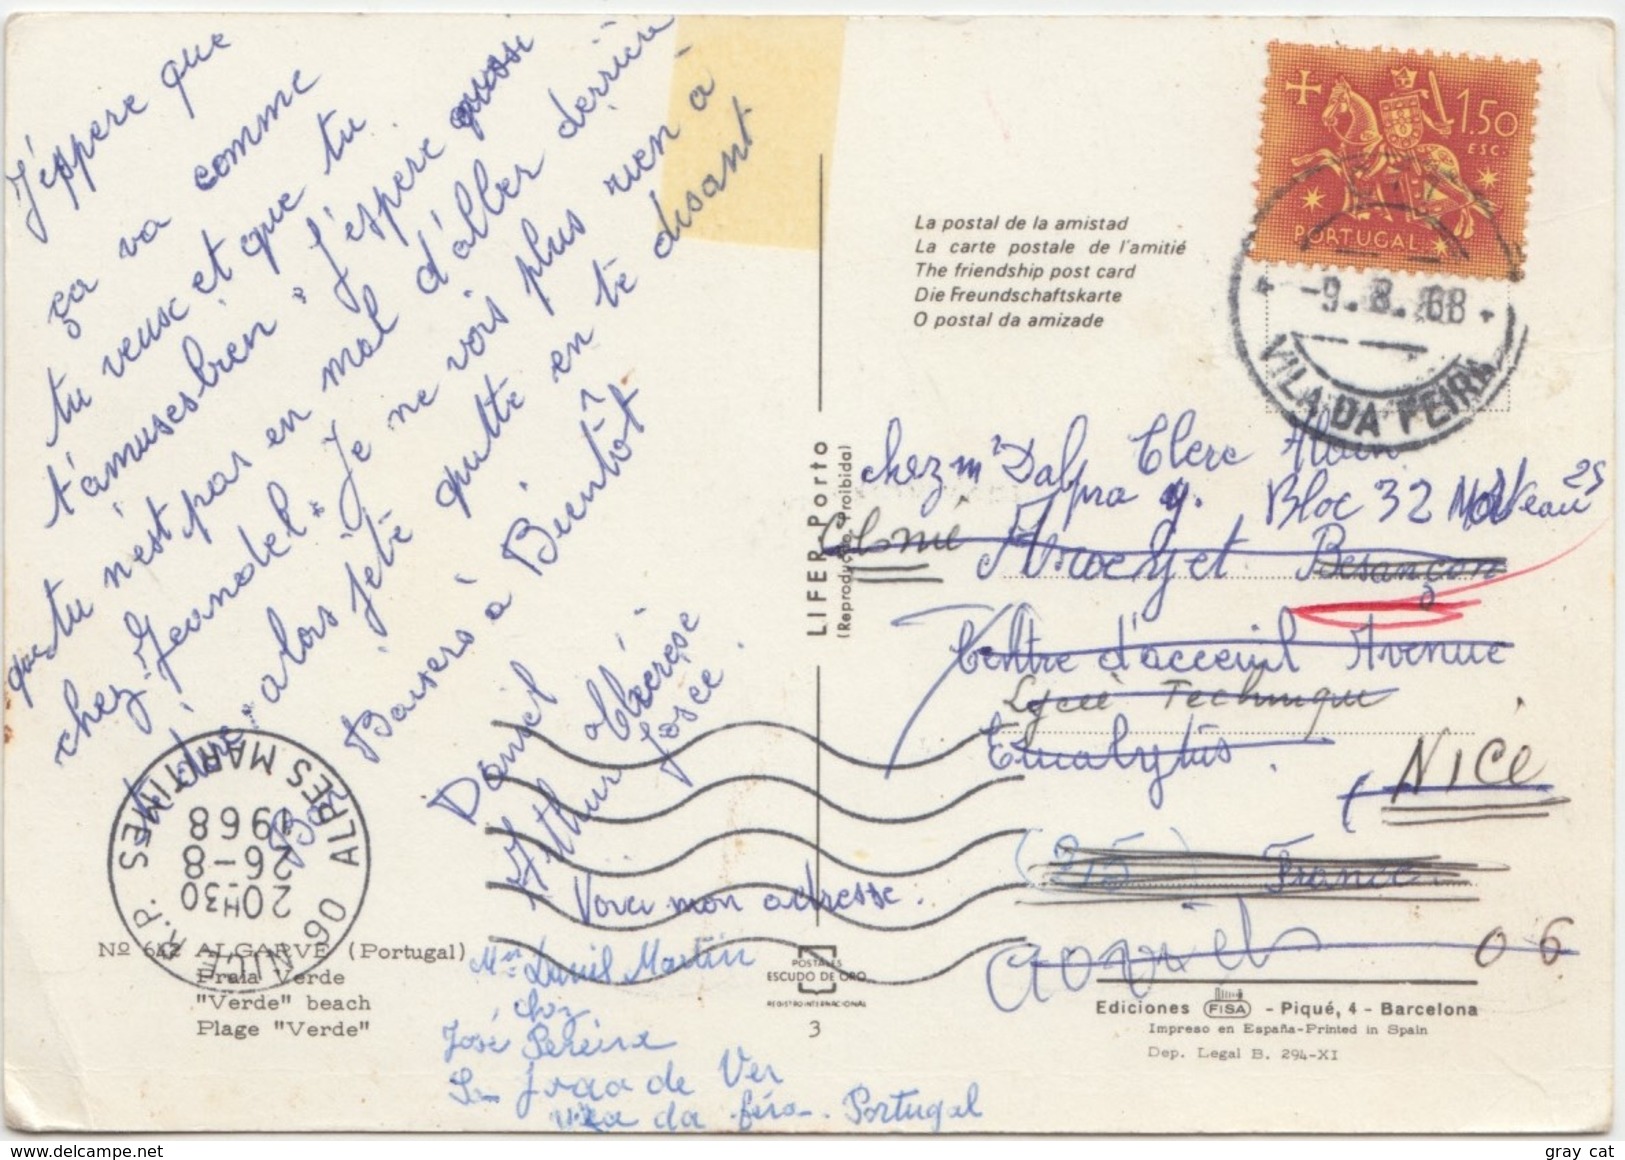 J'éspere que
ça va comme
tu veux et que tu
t'amuses bien. J'espere aussi
que tu n'est pas en mal d'aller derrière
chez Jeanodel. Je ne vois plus rien à
te dire alors je te quitte en te disant
Baisers à Bientôt
Daniel
Arthur
Josée.
Voici mon adresse.
Mr Daniel Martin
chez
José Pereira
São João de Ver
Vila da Feira - Portugal
Nº 642 ALGARVE (Portugal)
Praia Verde
"Verde" beach
Plage "Verde"
06 NICE R.P. ALPES MARITIMES
20H30
26-8
1968
LIFER Porto
(Reprodução Proibida)
POSTALES
ESCUDO DE ORO
REGISTRO INTERNACIONAL
3
1.50
ESC.
PORTUGAL
-9.8.68
VILA DA FEIRA
La postal de la amistad
La carte postale de l'amitié
The friendship post card
Die Freundschaftskarte
O postal da amizade
Clerc Alain
chez Mr Dalpra Bloc 32
Colonie Besançon
Centre d'acceuil Avenue
Lycée Technique
Eucalyptus.
NICE
(25) France
06
Ediciones FISA - Piqué, 4 - Barcelona
Impreso en España-Printed in Spain
Dep. Legal B. 294-XI
gray cat